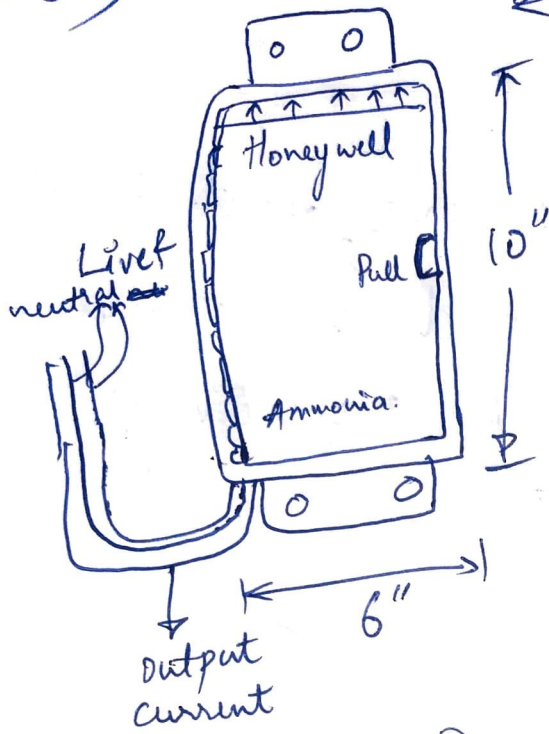 Honeywell
10"
Live &
neutral
Pull
Ammonia.
6"
Output
current